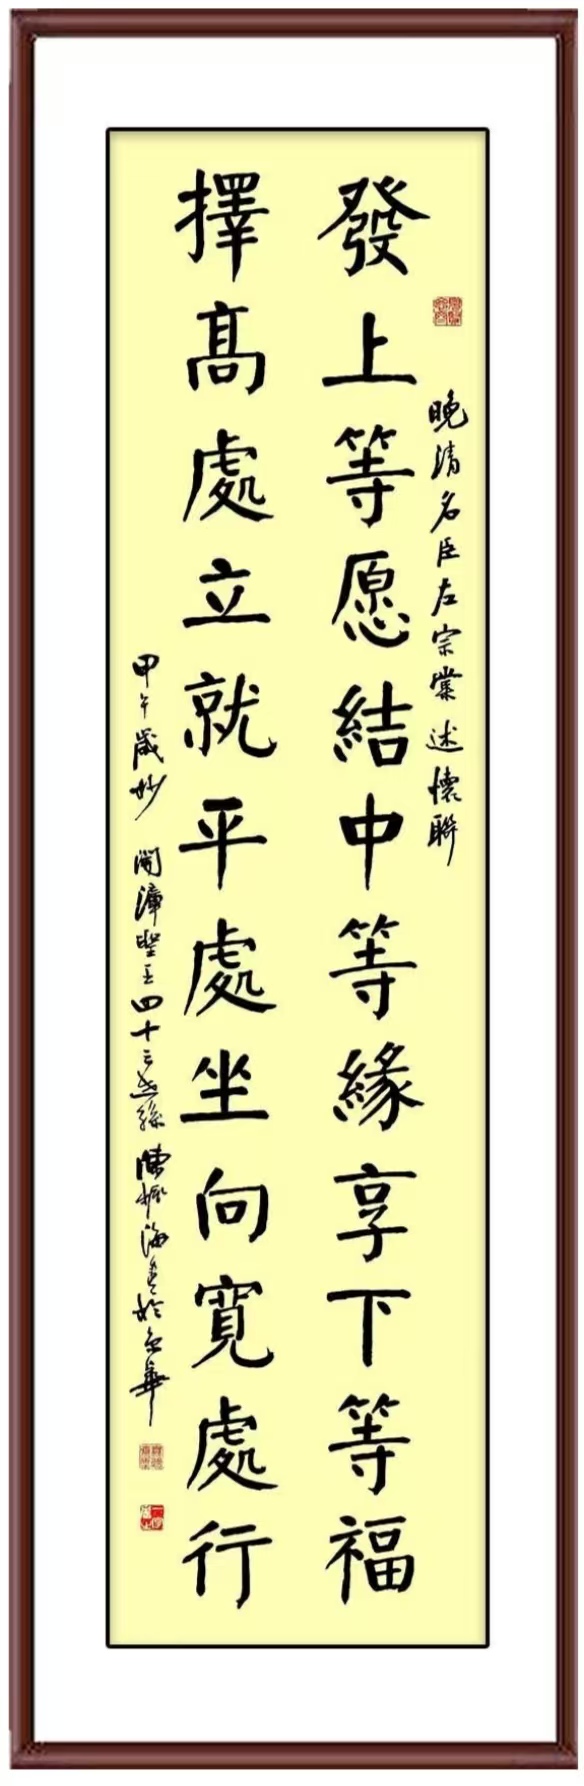 晚清名臣左宗棠述懷聯
發上等愿結中等緣享下等福
擇髙處立就平處坐向寬處行
甲午歲妙 開漳聖王四十三世孫 陳振海書於京華